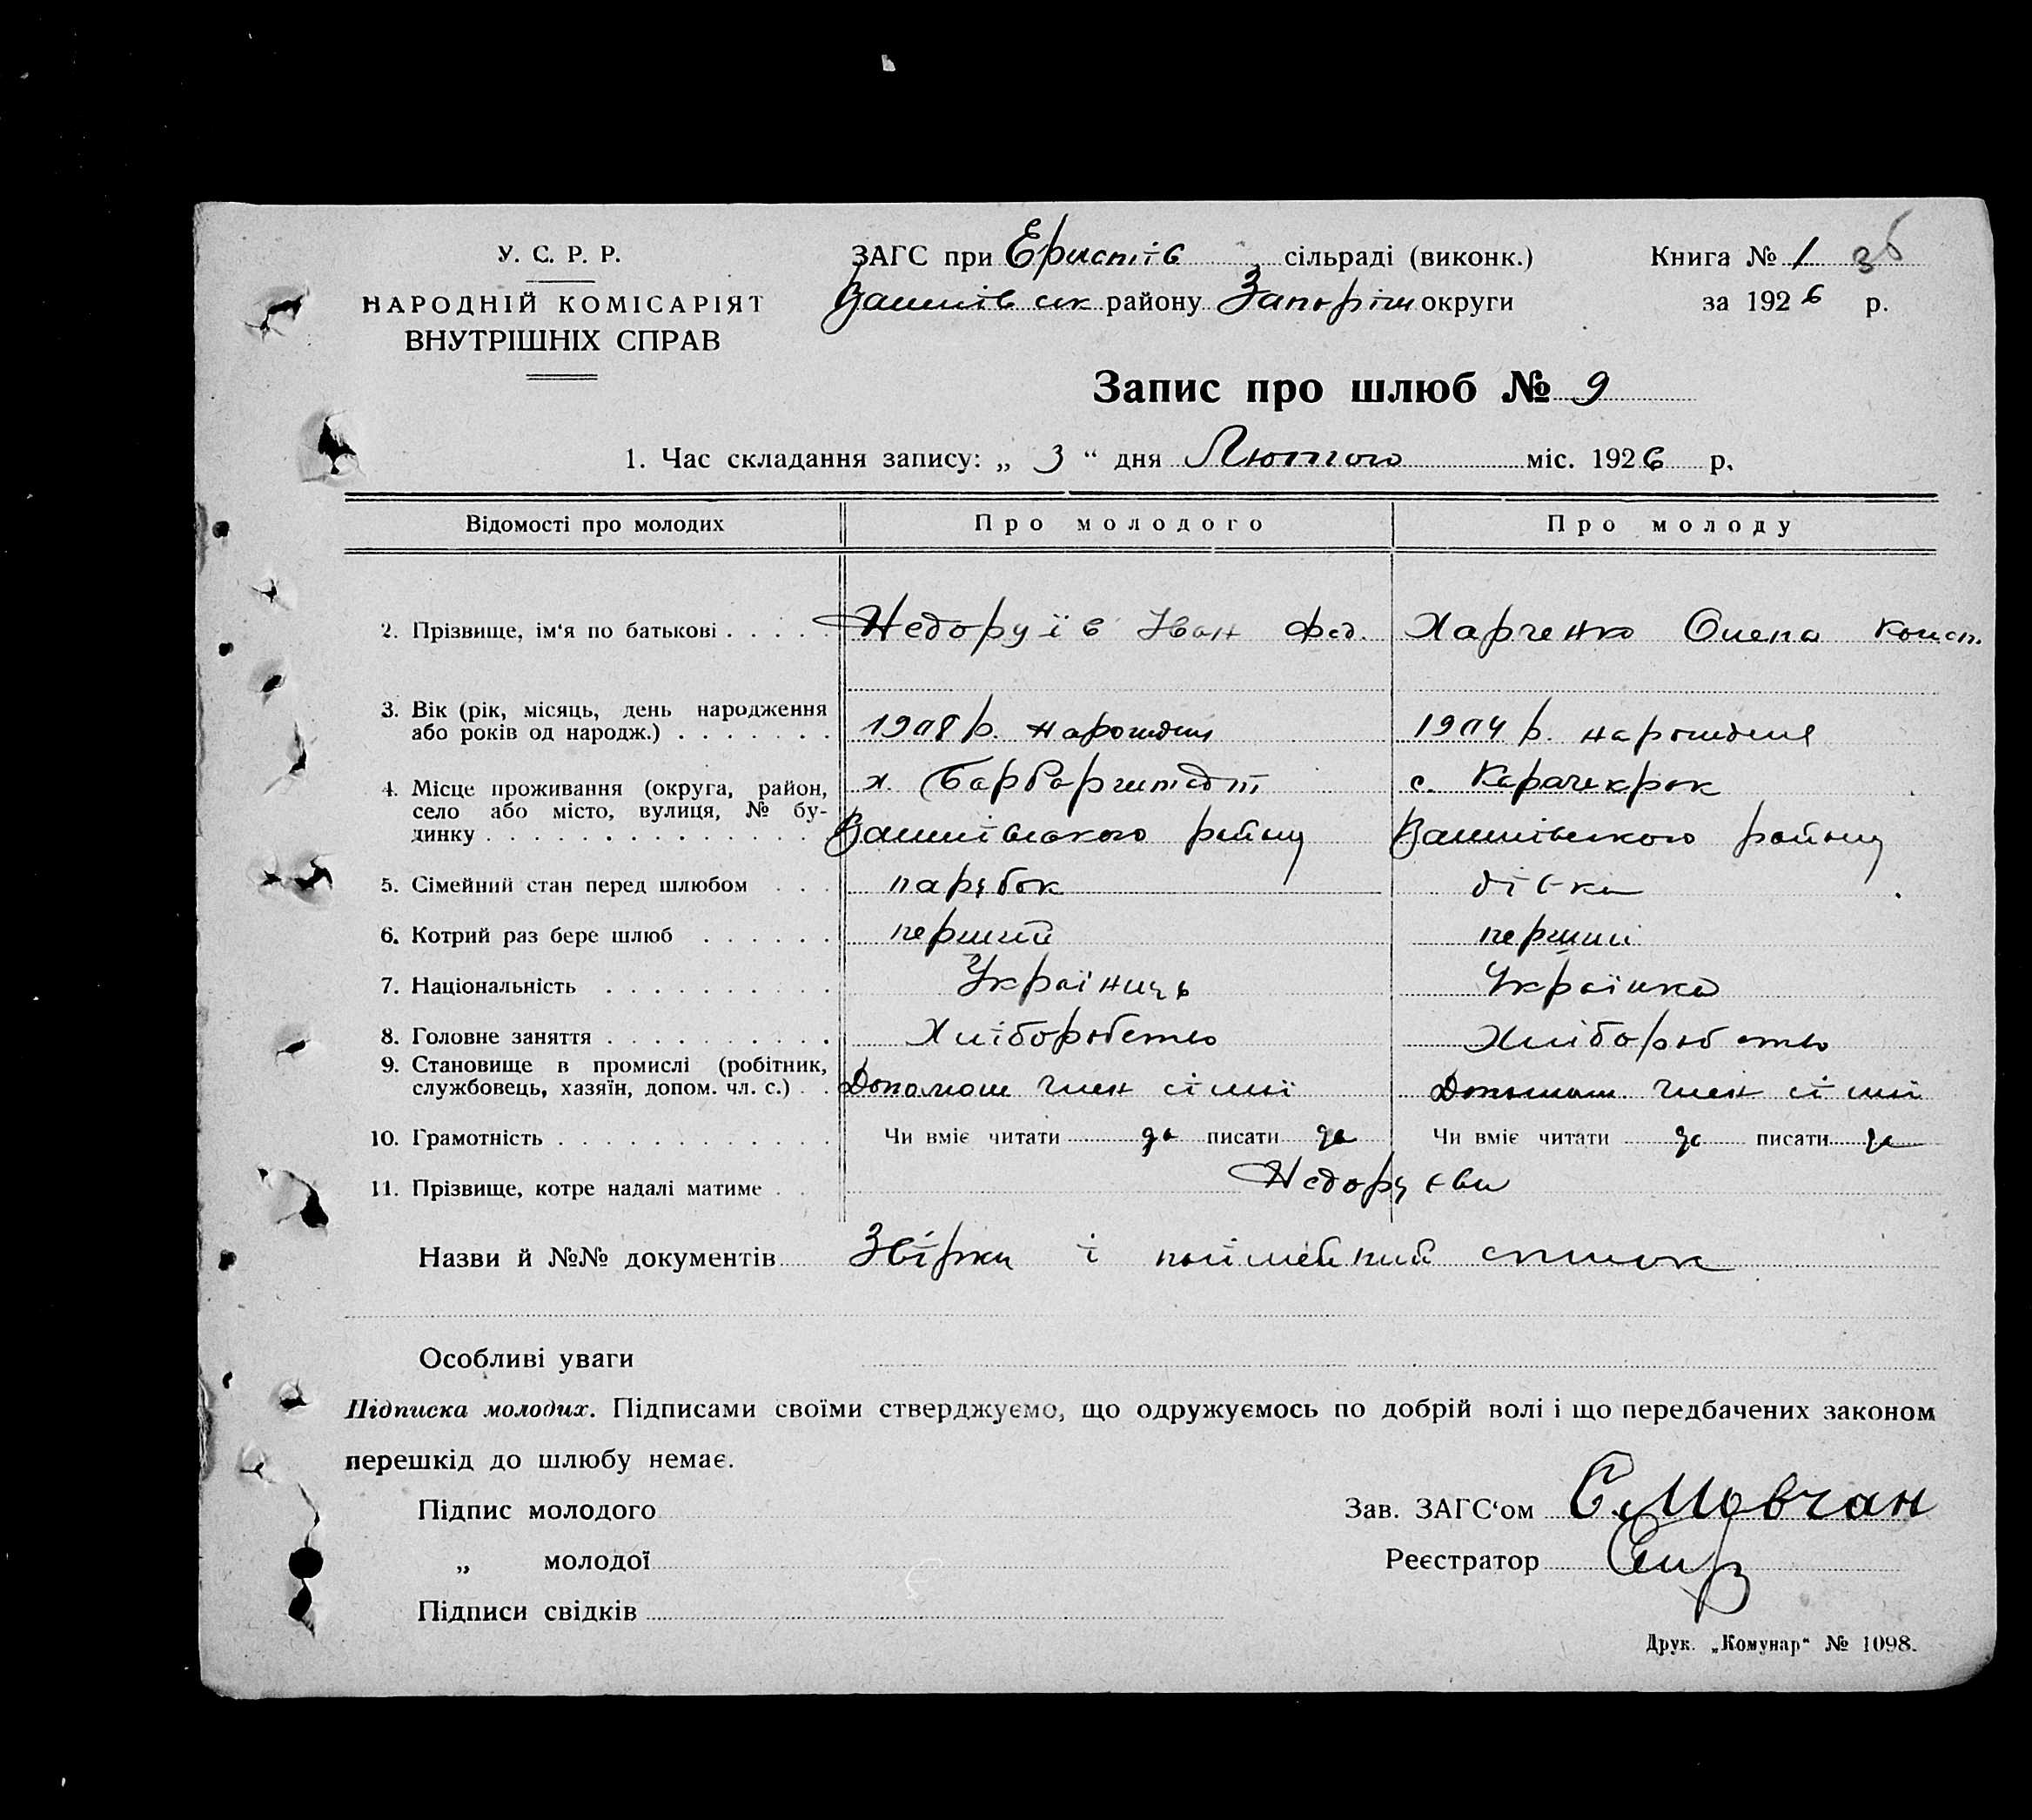 У. С. Р. Р.
НАРОДНІЙ КОМІСАРІЯТ
ВНУТРІШНІХ СПРАВ
ЗАГС при Еристів сільраді (виконк.)
Книга № 1 36
Вашиівськ району Запоріж округи
за 1926 р.
Запис про шлюб № 9
1. Час складання запису: „ 3 “ дня Лютого міс. 1926 р.
Відомості про молодих Про молодого Про молоду
2. Прізвище, ім‘я по батькові Недоруїв Іван Фед. Харченко Олена Конст.
3. Вік (рік, місяць, день народження
або років од народж.) 1908 р. народження 1904 р. народження
4. Місце проживання (округа, район, х. с. Карачекрак
село або місто, вулиця, № бу-
динку району району
5. Сімейний стан перед шлюбом парубок дівка
6. Котрий раз бере шлюб перший перший
7. Національність Українець Українка
8. Головне заняття Хліборобство Хліборобство
9. Становище в промислі (робітник,
службовець, хазяїн, допом. чл. с.) Допомож член сімї Допомож. член сімї
10. Грамотність Чи вміє читати да писати да Чи вміє читати да писати да
11. Прізвище, котре надалі матиме Недоруєви
Назви й №№ документів Звірки і список
Особливі уваги
Підписка молодих. Підписами своїми стверджуємо, що одружуємось по добрій волі і що передбачених законом
перешкід до шлюбу немає.
Підпис молодого
Зав. ЗАГС‘ом Є. Мовчан
„ молодої
Реєстратор
Підписи свідків
Друк. „Комунар“ № 1098.